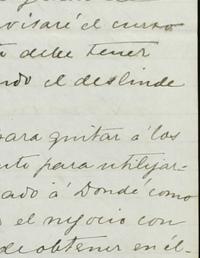 visaré el curso
debe tener
ndo el deslinde
para quitar á los
nto para utilizar-
ado á Donde como
el negocio con
de obtener en él-